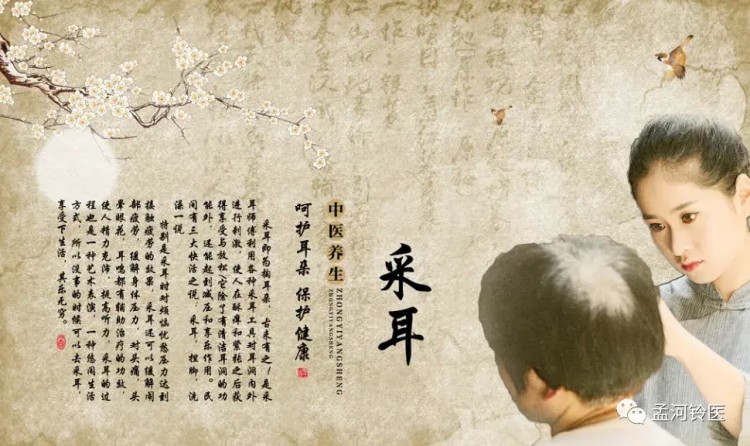 采耳
中医养生
ZHONGYIYANGSHENG
ZHONGYIYANGSHENG
呵护耳朵 保护健康
采耳即为掏耳朵，古来有之！是采
耳师傅利用各种采耳工具对耳洞内外
进行刺激，使人在酥痒和紧张之后获
得享受与放松，它除了有清洁耳洞的功
能外，还能起到减压和享乐作用。民
间有三大快活之说，采耳，捏脚，洗
澡一说
特别是采耳时对烦恼忧愁压力达到
接触疲劳的效果，采耳还可以缓解闹
部疲劳，缓解身体压力，对头痛，头
晕眼花，耳鸣都有辅助治疗的功效，
使人精力充沛，提高听力，采耳的过
程也是一种艺术表演，一种悠闲生活
方式，所以没事的时候可以去采耳，
享受下生活，其乐无穷。
孟河铃医